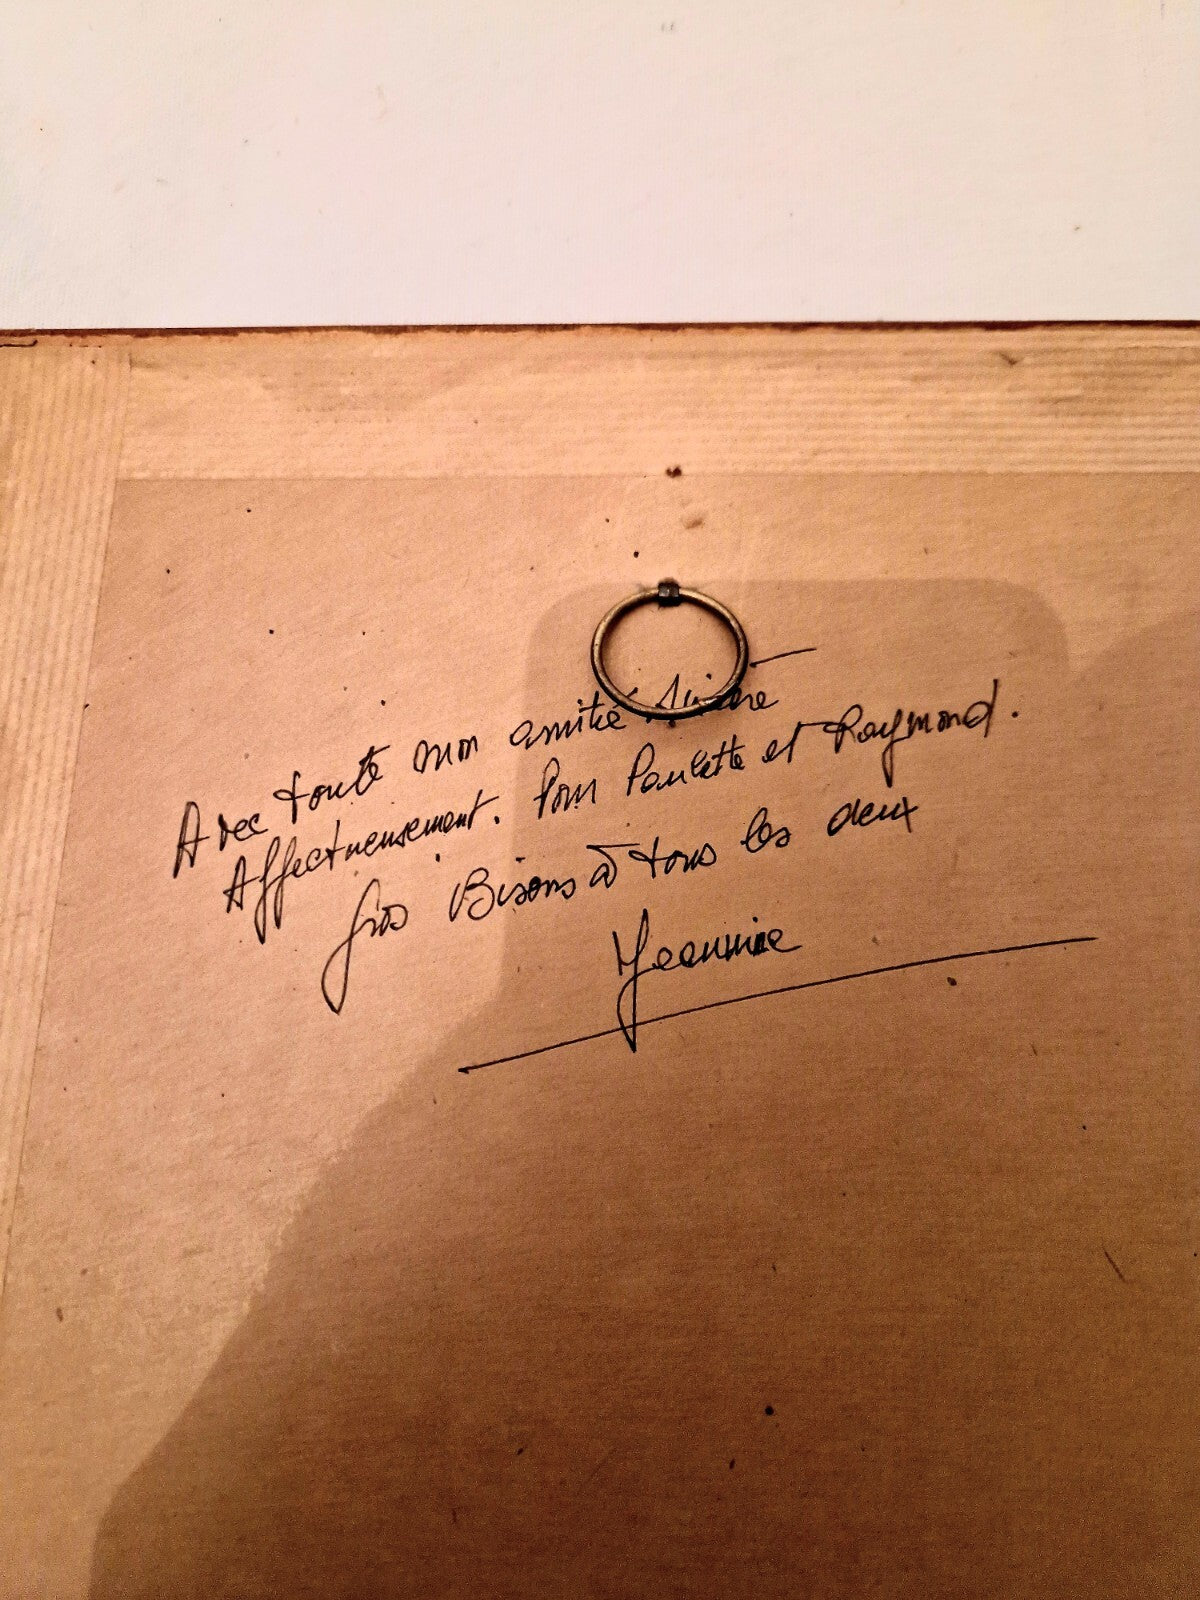 Avec toute mon amitié sincère
Affectueusement. Pour Paulette et Raymond.
Gros Bisons à tous les deux
Jeannine